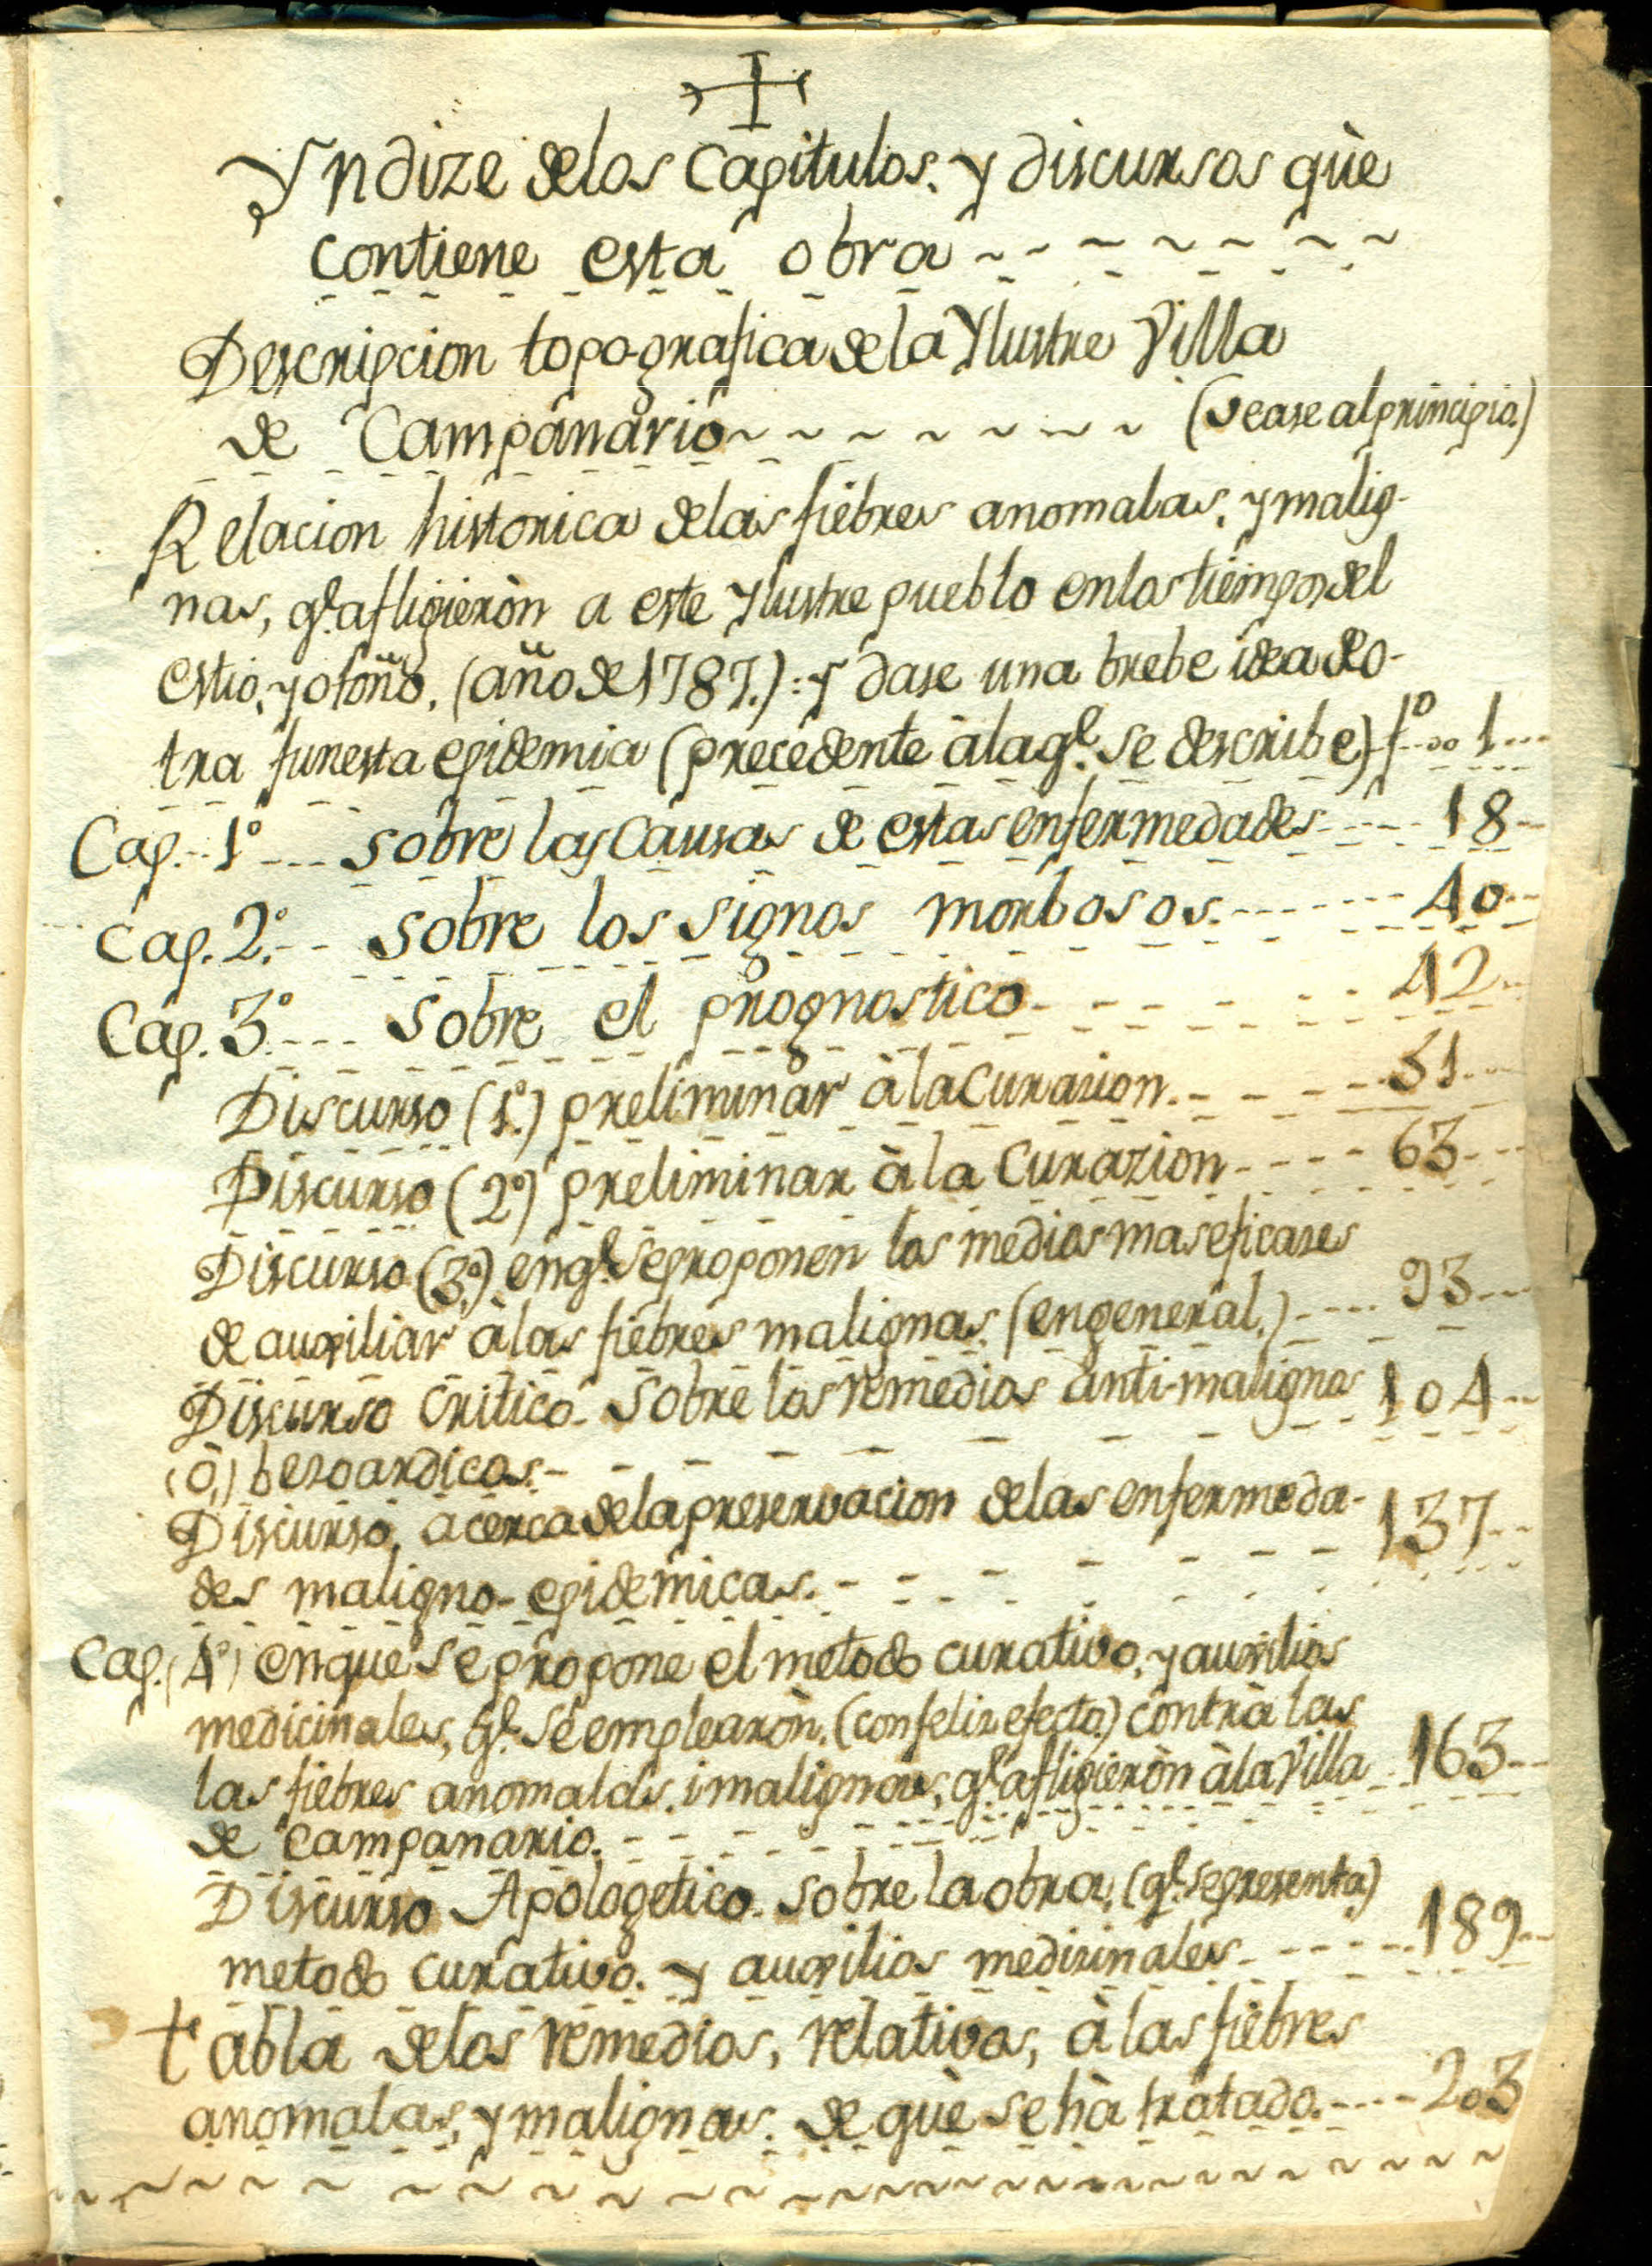 Yndize delos Capitulos. y discursos què
contiene esta obra
Descripcion topo-grafica dela Ylustre Villa
de Campanario (vease al principio.)
Relacion historica delas fiebres anomalas, y malig-
nas, qe. afligieròn a este Ylustre pueblo enlos tiempos del
estio, y otoño, (año de 1787.): y dase una brebe idea de o-
tra funesta epidemia (precedente àla qe. se describe) fo 1
Cap. 1º sobre las Causas de estas enfermedades 18
Cap. 2.º sobre los signos morbosos. 40
Cap. 3.º sobre el prognostico 42
Discurso (1.º) preliminar àla Curazion. 51
Discurso (2º) preliminar àla Curazion 63
Discurso (3º.) en qe. se proponen los medios mas eficazes
de auxiliar àlas fiebres malignas. (en general.) 93
Discurso critico. Sobre los remedios anti-malignos 104
(ò,) bezoardicos.
Discurso, acerca dela preservacion delas enfermeda- 137
des maligno-epidemicas.
Cap. (4º) en que se propone el metodo curativo, y auxilios
medicinales, qe. se emplearòn, (con feliz efecto.) contrà las
las fiebres anomalas, i malignas, qe. afligieròn àla Villa 163
de Campanario.
Discurso Apologetico. Sobre la obra, (qe. se presenta)
metodo curativo. y auxilios medizinales 189
tabla delos remedios, relativos, àlas fiebres
anomalas, y malignas. de què se hà tratado. 203